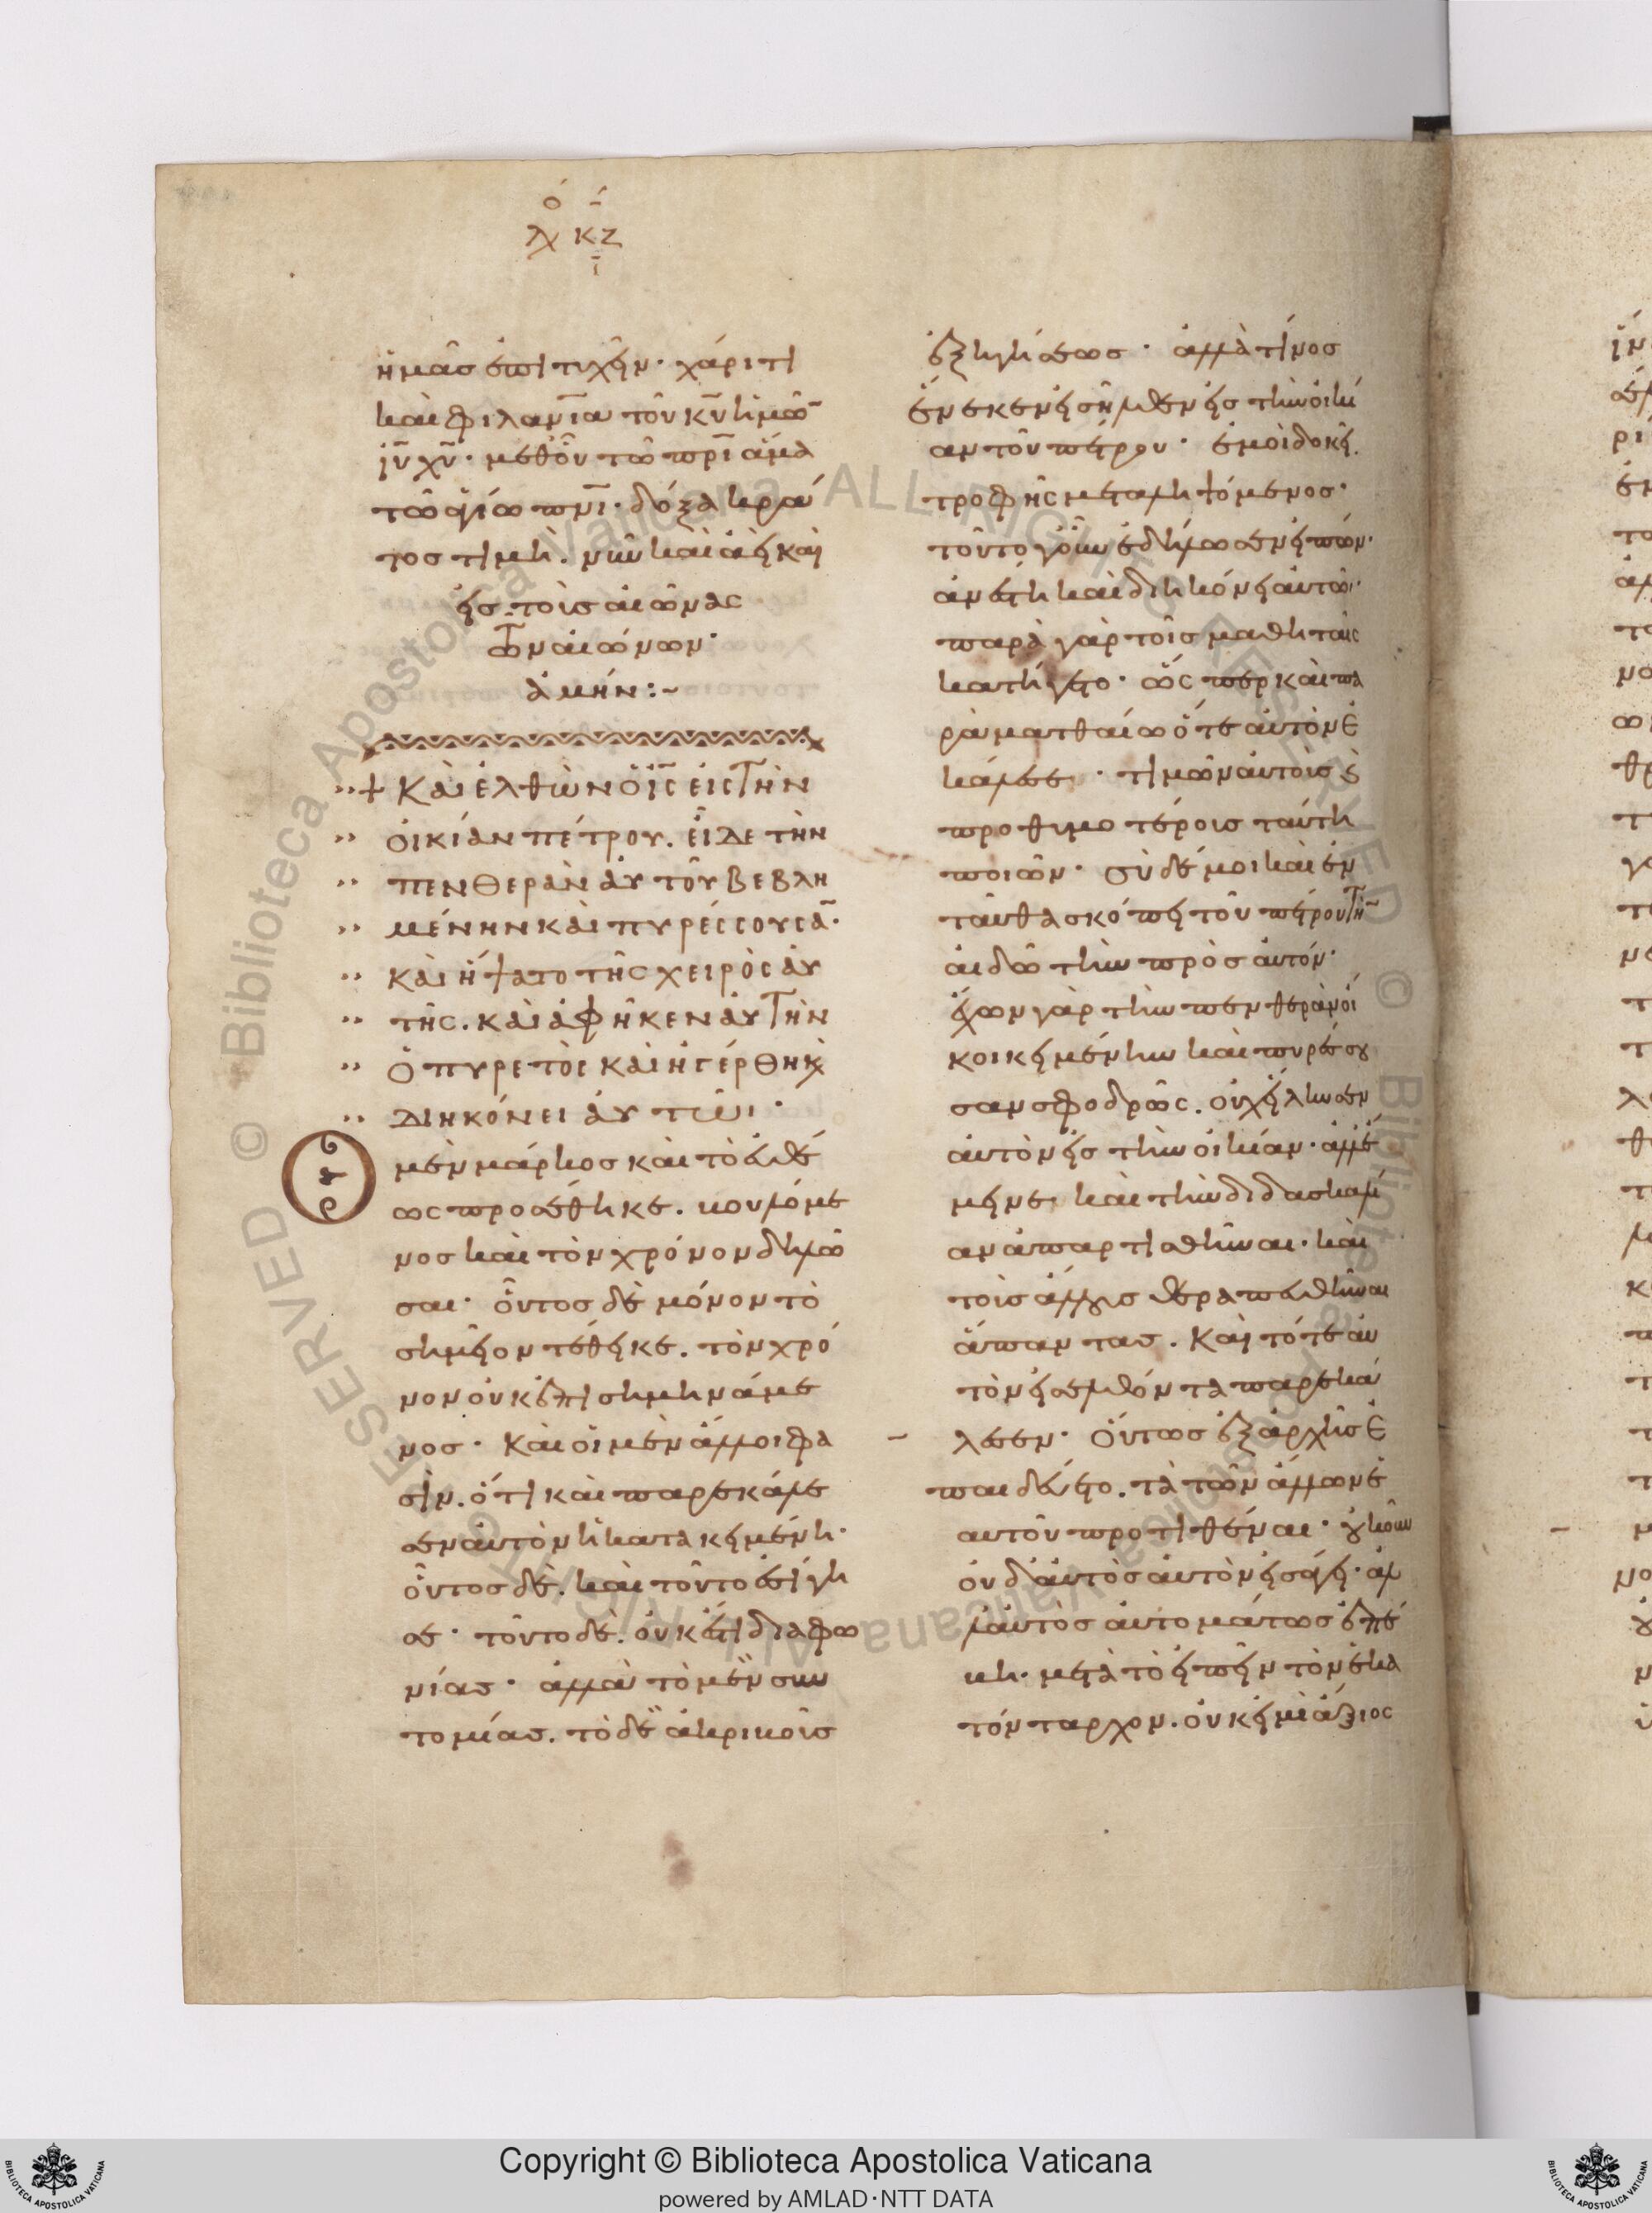 ό
λχ κζ
ϊ
ἡμᾶς ἐπιτυχεῖν· χάριτι
καὶ φιλανΐα τοῦ κυ ἡμῶ
ιυ χυ· μεθοῦ τῶ πρι ἅμα
τῶ ἁγίω πνι· δόξα κρά
τος τιμὴ. νῦν καὶ ἀεὶ καὶ
εἰς τοὺς αἰῶνας
τῶν αἰώνων·
ἀμήν:~
+ Καὶ ἐλθὼν ὁ ις εἰς τὴν
οἰκίαν πέτρου. εἶδε τὴν
πενθερὰν ἀυτοῦ βεβλη
μένην καὶ πυρέσσουσα·
καὶ ἥψατο τῆς χειρὸς ἀυ
τῆς. καὶ ἀφῆκεν ἀυτὴν
ὁ πυρετὸς καὶ ἠγέρθη κ
διηκόνει ἀυτῶι·
Ὁ μὲν μάρκος καὶ τὸ ἐυθέ
ως προσέθηκε. βουλόμε
νος καὶ τὸν χρόνον δηλῶ
σαι· οὗτος δὲ μόνον τὸ
σημεῖον τέθεικε. τὸν χρό
νον οὐκ ἔτι σημηνάμε
νος· καὶ οἱ μὲν ἄλλοι φα
σὶν. ὅτι καὶ παρεκάλε
σεν αὐτὸν ἡ κατακειμένη·
οὗτος δὲ. καὶ τοῦτο ἐσίγη
σε· τοῦτο δὲ. οὐκ ἔτι διαφω
νίας· ἀλλὰ τὸ μὲν συν
τομίας. τὸ δὲ ἀκριβοῦς
ἐξηγήσεως· ἀλλὰ τίνος
ἕνεκεν εἰσῆλθεν εἰς τὴν οἰκί
αν τοῦ πέτρου· ἐμοὶ δοκεῖ.
τροφῆς μεταληψόμενος·
τοῦτο γοῦν ἐδήλωσεν εἰπών·
ἀνέστη καὶ διηκόνει αὐτῶ·
παρὰ γὰρ τοῖς μαθηταῖς
κατήγετο· ὥσπερ καὶ πα
ρὰ ματθαίω ὅτε αὐτὸν ἐ
κάλεσε· τιμῶν αὐτοὺς κ
προθυμοτέρους ταύτη
ποιῶν· σὺ δέ μοι καὶ ἐν
ταῦθα σκόπει τοῦ πέτρου τὴ
αἰδῶ τὴν πρὸς αὐτόν·
ἔχων γὰρ τὴν πενθερὰν οἴ
κοι κειμένην καὶ πυρέσσου
σαν σφοδρῶς. οὐχ εἵλκυσεν
αὐτὸν εἰς τὴν οἰκίαν· ἀλλ ἔ
μεινε καὶ τὴν διδασκαλί
αν ἀπαρτισθῆναι· καὶ
τοὺς ἄλλους θεραπευθῆναι
ἅπαντας. καὶ τότε αὐ
τὸν εἰσελθόντα παρεκά
λεσεν· οὕτως ἐξ ἀρχῆς ἐ
παιδεύετο. τὰ τῶν ἄλλων ἑ
αυτοῦ προτιθέναι· οὐκοῦν
οὐδ αὐτὸς αὐτὸν εἰσάγει· ἀλ
λ αὐτὸς αὐτομάτως ἐπέ
βη· μετὰ τὸ εἰπεῖν τὸν ἑκα
τόνταρχον. οὐκ εἰμὶ ἄξιος
Copyright © Biblioteca Apostolica Vaticana
powered by AMLAD·NTT DATA